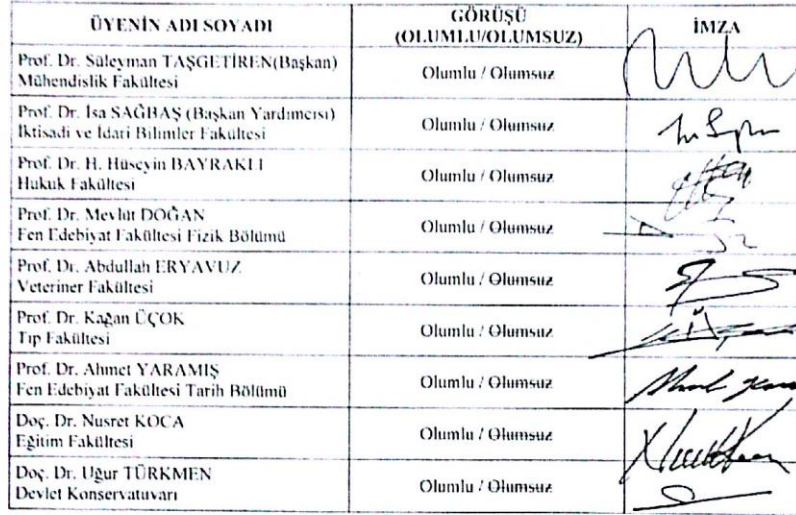 ÜYENİN ADI SOYADI
GÖRÜŞÜ
(OLUMLU/OLUMSUZ)
İMZA
Prof. Dr. Süleyman TAŞGETİREN(Başkan)
Mühendislik Fakültesi
Olumlu / Olumsuz
Prof. Dr. İsa SAĞBAŞ (Başkan Yardımcısı)
İktisadi ve İdari Bilimler Fakültesi
Olumlu / Olumsuz
Prof. Dr. H. Hüseyin BAYRAKLI
Hukuk Fakültesi
Olumlu / Olumsuz
Prof. Dr. Mevlüt DOĞAN
Fen Edebiyat Fakültesi Fizik Bölümü
Olumlu / Olumsuz
Prof. Dr. Abdullah ERYAVUZ
Veteriner Fakültesi
Olumlu / Olumsuz
Prof. Dr. Kağan ÜÇOK
Tıp Fakültesi
Olumlu / Olumsuz
Prof. Dr. Ahmet YARAMIŞ
Fen Edebiyat Fakültesi Tarih Bölümü
Olumlu / Olumsuz
Doç. Dr. Nusret KOCA
Eğitim Fakültesi
Olumlu / Olumsuz
Doç. Dr. Uğur TÜRKMEN
Devlet Konservatuvarı
Olumlu / Olumsuz